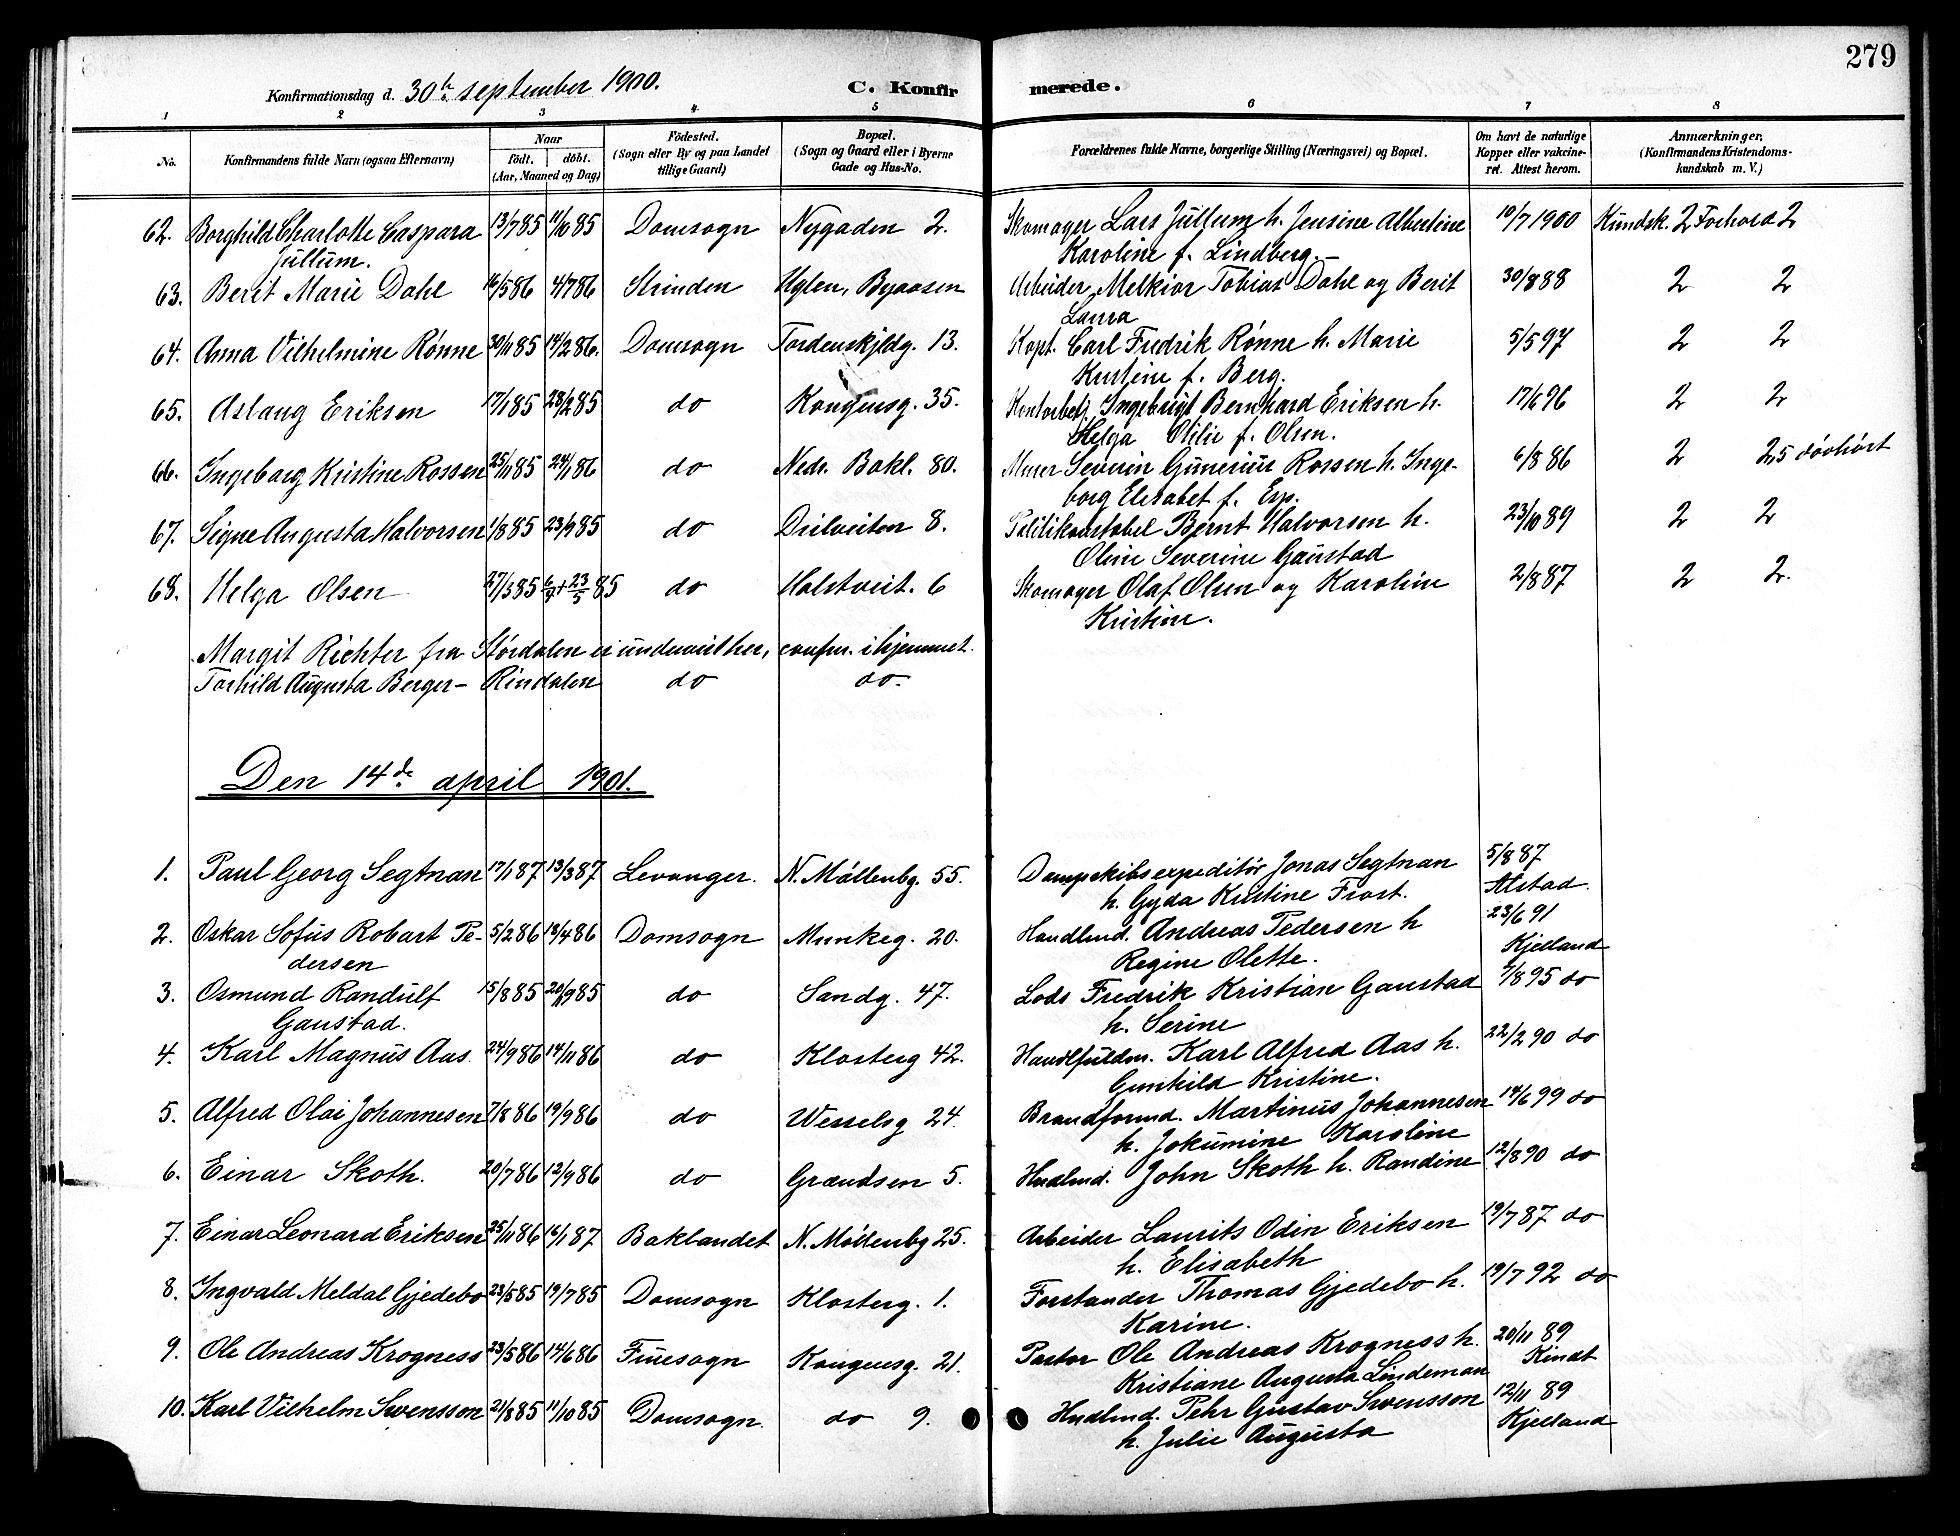 279
Konfirmationsdag d. 30te september 1900.
C. Konfirmerede.
1 2 3 4 5 6 7 8
No.
Konfirmandens fulde Navn (ogsaa Efternavn)
Naar
födt. döbt.
(Aar, Maaned og Dag)
Födested.
(Sogn eller By og paa Landet
tillige Gaard)
Bopæl.
(Sogn og Gaard eller i Byerne
Gade og Hus-No.
Forældrenes fulde Navne, borgerlige Stilling (Næringsvei) og Bopæl.
Om havt de naturlige
Kopper eller vakcine-
ret. Attest herom.
Anmærkninger,
(Konfirmandens Kristendoms-
kundskab m. V.)
62. Borghild Charlotte Caspara 13/7 85 11/10 85 Domsogn Nygaden 2. Skomager Lars Jullum h. Jensine Albertine 10/7 1900 Kundsk. 2 Forhold 2
Jullum. Karoline f. Lindberg.
63. Berit Marie Dahl 16/5 86 4/7 86 Strinden Uglen, Byaasen Arbeider Melkior Tobias Dahl og Berit 30/8 88 2 2
Laura
64. Anna Vilhelmine Rønne 30/11 85 14/2 86. Domsogn Tordenskjldg. 13. Kapt. Carl Fredrik Rønne h. Marie 5/5 97 2 2
Kristine f. Berg.
65. Aslaug Eriksen 17/1 85 28/2 85 do Kongensg. 35. Kontorbetj. Ingebrigt Bernhard Eriksen h. 17/6 96 2 2
Helga Otilie f. Olsen.
66. Ingeborg Kristine Rossen 25/11 85 24/1 86 do Nedr. Bakl. 80. Murer Severin Gunerius Rossen h. Inge- 6/8 86 2 2,5 døvhørt
borg Elisabet f. Esp.
67. Signe Augusta Halvorsen 1/8 85 23/9 85 do Duilveiten 8. Politikonstabel Bernt Halvorsen h. 23/10 89 2 2
Oline Severine Gaustad
68. Helga Olsen 27/3 85 6/4 + 23/5 85 do Holstveit. 6 Skomager Olaf Olsen og Karoline 2/8 87 2 2.
Kristine.
Margit Richter fra Størdalen er undervist her, confm. i hjemmet.
Torhild Augusta Berger - Rindalen do do.
Den 14de april 1901.
1. Paul Georg Segtnan 17/1 87 13/3 87 Levanger. N. Møllenbg. 55. Dampskibsexpeditör Jonas Segtnan 5/8 87
h. Gyda Kristine Frost. Alstad.
2. Oskar Sofus Robart Pe- 5/2 86 18/4 86 Domsogn Munkeg. 20. Handlmd. Andreas Pedersen h 23/6 91
dersen Regine Olette. Kjelland
3. Osmund Randulf 15/8 85 20/9 85 do Sandg. 47. Lods Fredrik Kristian Gaustad 7/8 95 do
Gaustad. h. Serine
4. Karl Magnus Aas. 24/9 86 14/11 86 do Klosterg 42. Handlfuldm. Karl Alfred Aas h. 22/2 90 do
Gunhild Kristine.
5. Alfred Olai Johannesen 7/8 86 19/9 86 do Wesselsg 24. Brandformd. Martinus Johannesen 14/6 99 do
h. Jokumine Karoline
6. Einar Skoth. 20/7 86 12/9 86 do Grændsen 5. Hndlmd. John Skoth h. Randine 12/8 90 do
7. Einar Leonard Eriksen 25/11 86 16/1 87 Baklandet N. Møllenbg 25. Arbeider Laurits Odin Eriksen 19/7 87 do
h. Elisabeth
8. Ingvald Meldal Gjedebo 23/5 85 19/7 85 Domsogn Klosterg. 1. Forstander Thomas Gjedebo h. 19/7 92 do
Karine.
9. Ole Andreas Krogness 23/5 86 14/6 86 Fruesogn Kongensg. 21. Pastor Ole Andreas Krogness h. 20/11 89
Kristiane Augusta Lindeman Kindt
10. Karl Vilhelm Svensson 21/8 85 11/10 85 Domsogn. do 9. Hndlmd. Pehr Gustav Svensson 12/11 89
h. Julie Augusta Kjelland